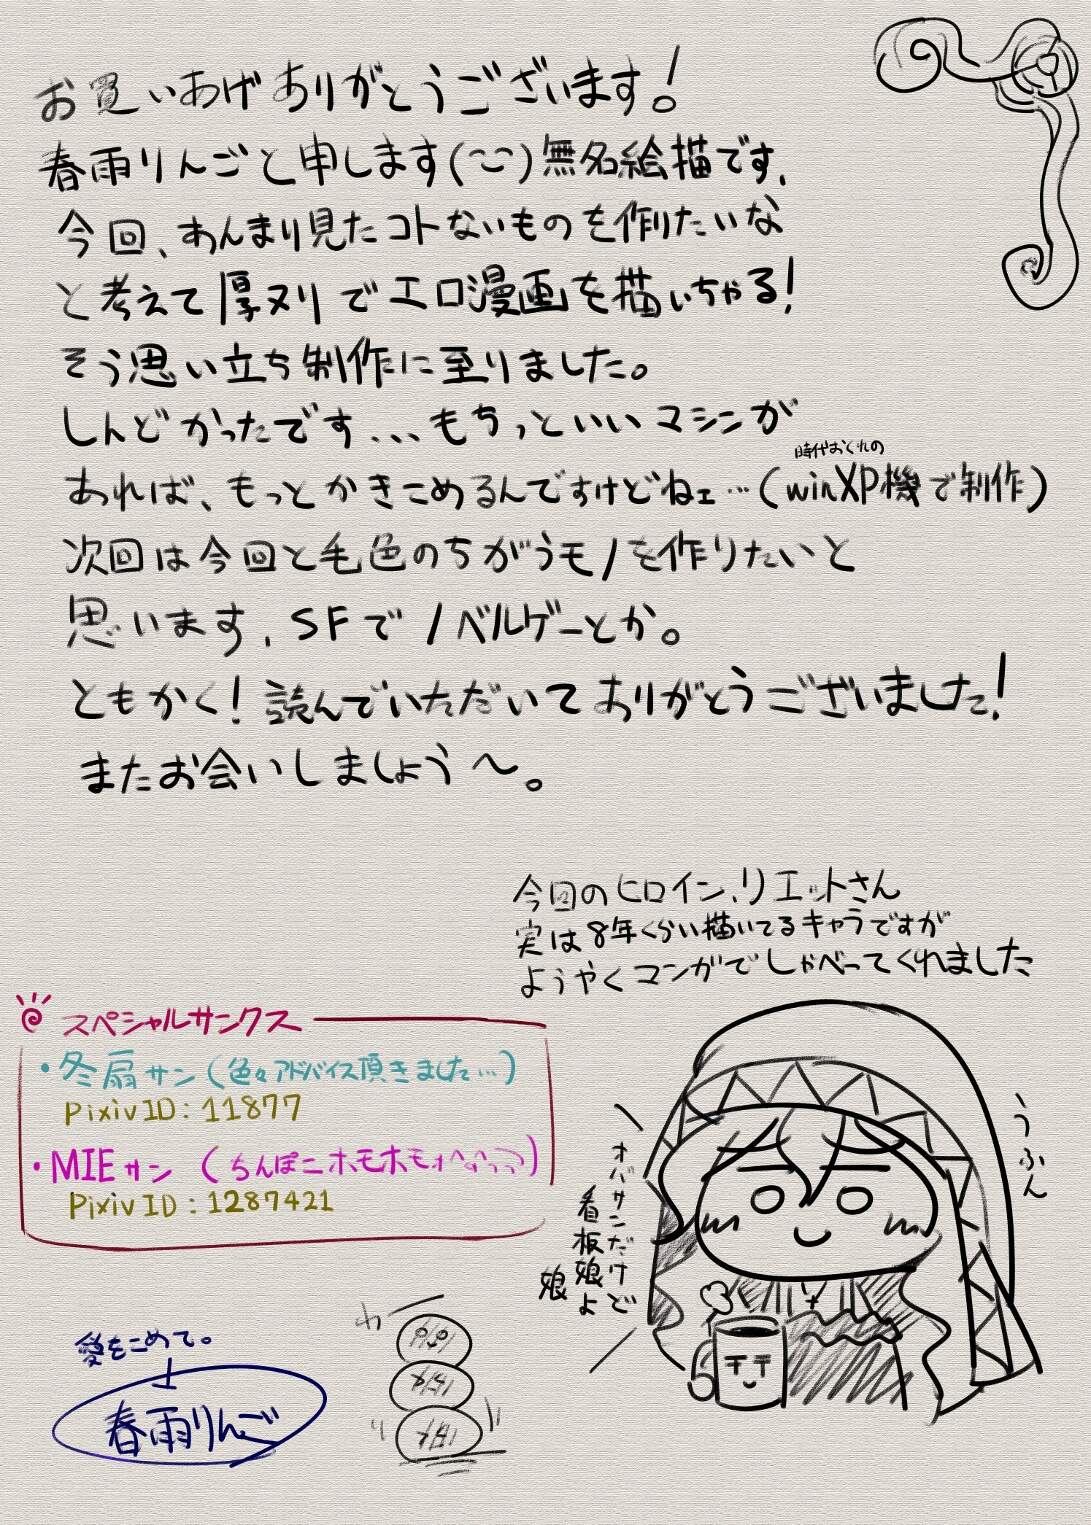 お買いあげありがとうございます!
春雨りんごと申します(~◡~)無名絵描です、
今回、あんまり見たコトないものを作りたいな
と考えて厚ヌリでエロ漫画を描いちゃる!
そう思い立ち制作に至りました。
しんどかったです...もちっといいマシンが
時代おくれの
あれば、もっとかきこめるんですけどねェ…(winXP機で制作)
次回は今回と毛色のちがうモノを作りたいと
思います、SFでノベルゲーとか。
ともかく!読んでいただいてありがとうございました!
またお会いしましょう〜。
今回のヒロイン、リエットさん
実は8年くらい描いてるキャラですが
ようやくマンガでしゃべってくれました
スペシャルサンクス
・冬扇サン(色々アドバイス頂きました…)
PixivID:11877
・MIEサン(ちんぽこホモホモォ)
PixivID:1287421
うふん
オバサンだけど
看板娘よ
娘
愛をこめて。
春雨りんご